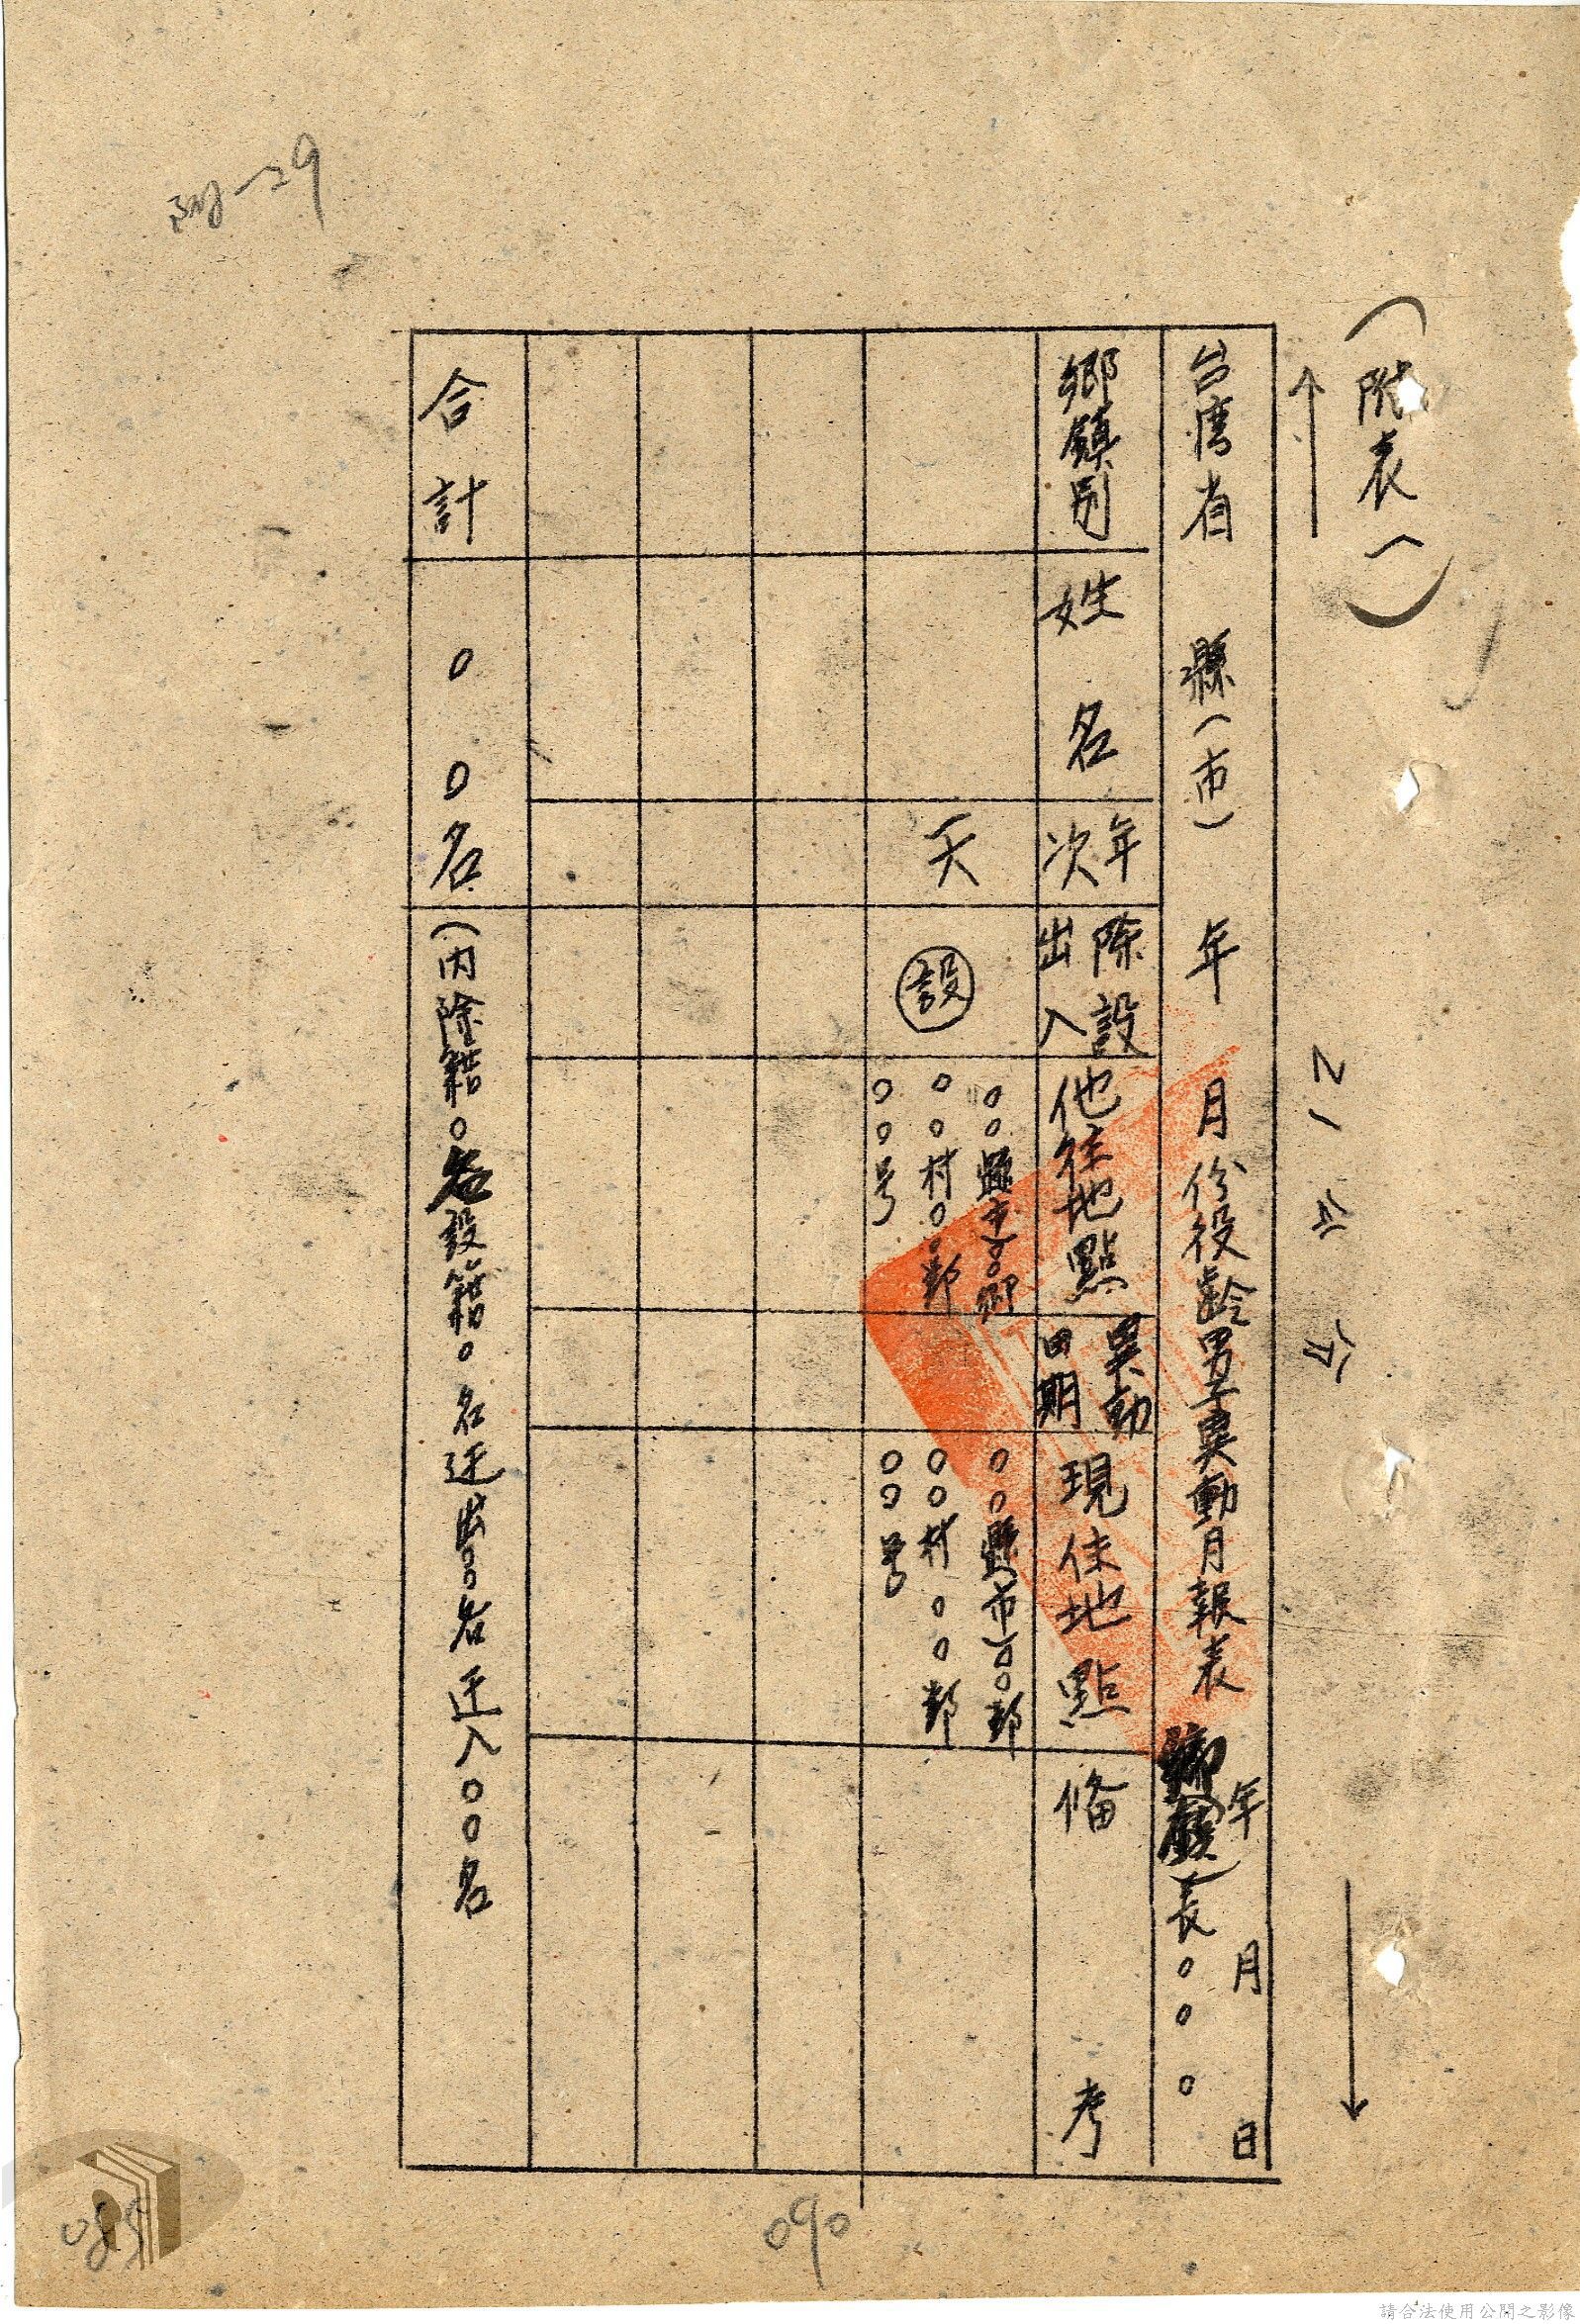 (附表一)
21公分
台湾省 縣(市) 年 月份役齡男子異動月報表
年 月 日
鄉(鎮)長○○○
鄉鎮別
姓名
年次
除設出入
他往地點
異動日期
現住地點
備考
天
設
○○縣市)○○鄉
○○村○○鄰
○○号
○○縣市)○○鄉
○○村○○鄰
○○号
合計 ○○名(內除籍○○名設籍○名迁出○○名迁入○○名
090
089
請合法使用公開之影像